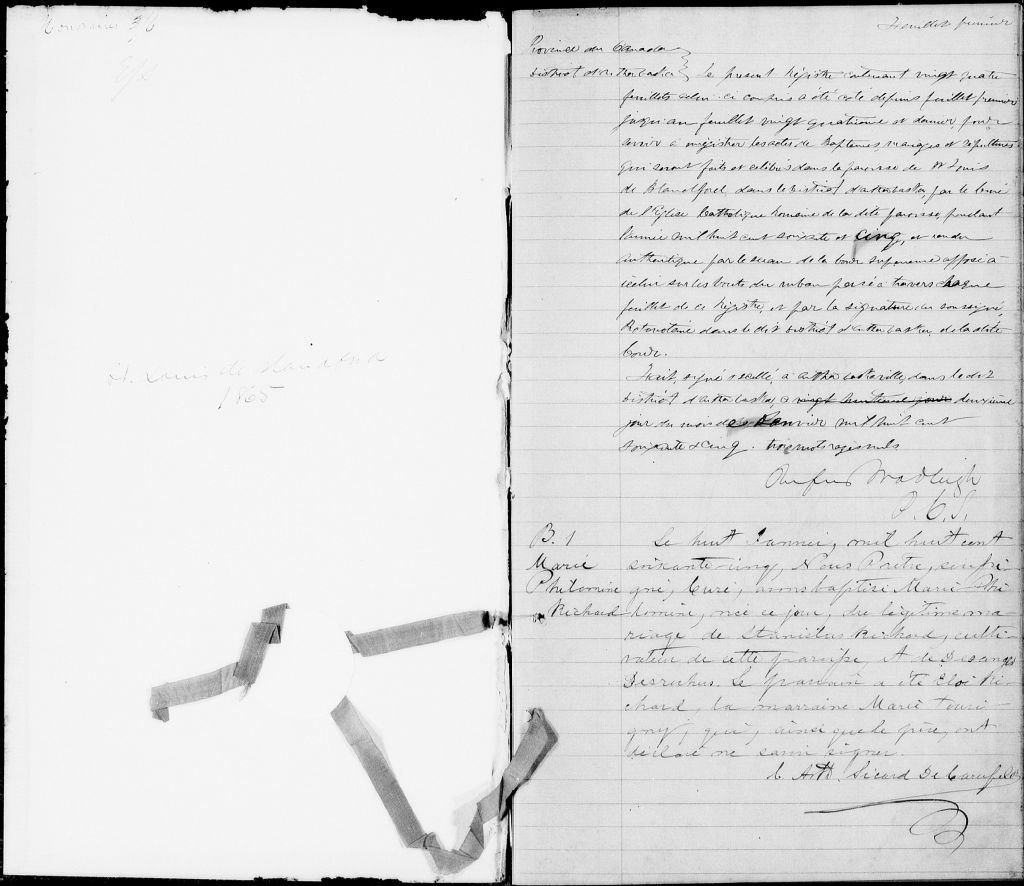 St. Louis de Blandford
1865
Feuillet premier
Province du Canada
District d'Arthabaska } Le present Régistre contenant vingt quatre
feuillets celui-ci compris a été coté depuis feuillet premier
jusqu'au feuillet vingt quatrieme et dernier, pour
servir à enrégistrer les actes de Baptemes mariages et sépultures
qui seront faits et célébrés dans la paroisse de St Louis
de Blandford dans le District d'Arthabaska, par le Curé
de l'Eglise Catholique Romaine de la dite paroisse, pendant
l'année mil huit cent soixante et cinq, et rendu
authentique par le sceau de la Cour superieure apposé à
icelui sur les bouts du ruban passé à travers chaque
feuillet de ce Régistre, et par la signature du soussigné,
Protonotaire dans le dit District d'Arthabaska, de la dite
Cour.
Fait, signé & scellé, à Arthabaskaville, dans le dit
District d'Arthabaska, ce vingt huitieme jour deuxieme
jour du mois de Janvier mil huit cent
soixante & cinq. trois mots rayés nuls
Rufus Wadleigh
P. C. S.
B. 1
Marie
Philomine
Richard
Le huit Janvier, mil huit cent
soixante-cinq, Nous Prêtre, soussi-
gné, Curé, avons baptisé Marie Phi-
lomine, née ce jour, du légitime ma-
riage de Stanislas Richard, culti-
vateur de cette paroisse, et de Desanges
Desruchers. Le parrain a été Eloi Ri-
chard, la marraine Marie Touri-
gny, qui, ainsi que le père, ont
déclaré ne savoir signer.
C. Arth. Sicard De Carufel